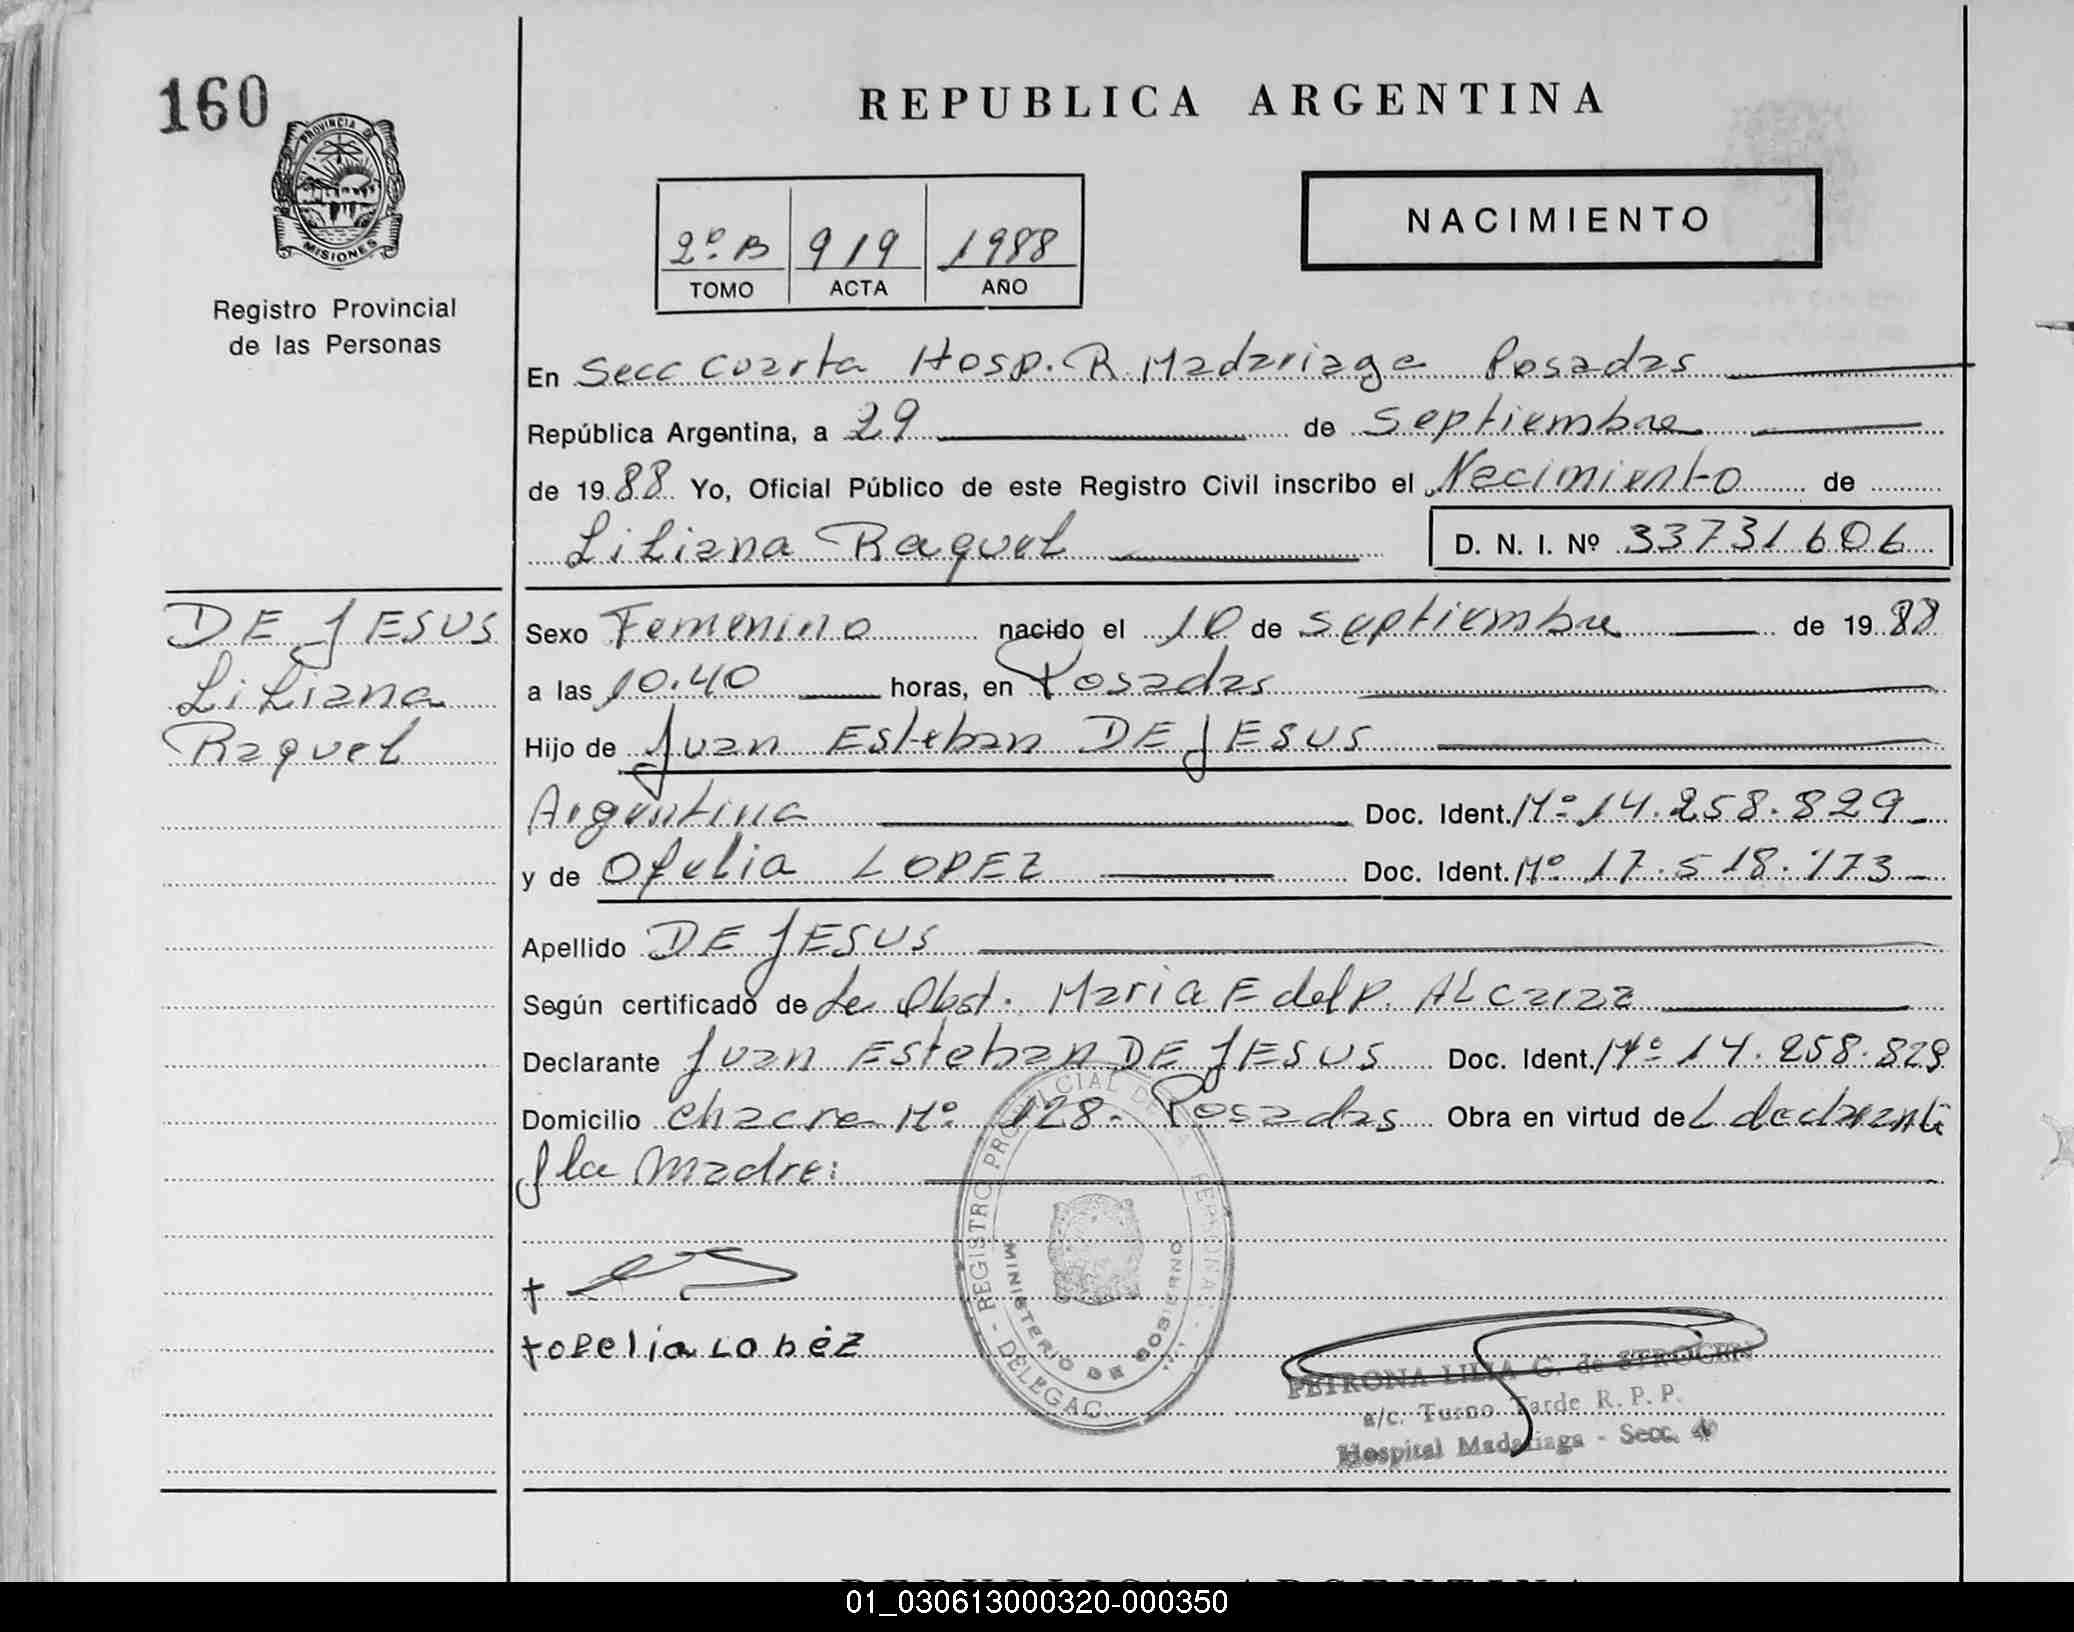 160
PROVINCIA DE
MISIONES
Registro Provincial
de las Personas
REPUBLICA ARGENTINA
2º B 919 1988
TOMO ACTA AÑO
NACIMIENTO
En Secc Cuarta Hosp. R. Madariaga Posadas
República Argentina, a 29 de Septiembre
de 1988 Yo, Oficial Público de este Registro Civil inscribo el Nacimiento de
Liliana Raquel D. N. I. Nº 33731606
DE JESUS
Liliana
Raquel
Sexo Femenino nacido el 10 de Septiembre de 1988
a las 10.40 horas, en Posadas
Hijo de Juan Esteban DE JESUS
Argentina Doc. Ident. Mº 14.258.829
y de Ofelia LOPEZ Doc. Ident. Mº 17.518.173
Apellido DE JESUS
Según certificado de La Obst. Maria E del P. ALcaraz
Declarante Juan Esteban DE JESUS Doc. Ident. Mº 14.258.829
Domicilio Chacra Nº 128- Posadas Obra en virtud del declarante
y la Madre:
REGISTRO PROVINCIAL DE LAS PERSONAS - DELEGAC.
MINISTERIO DE GOBIERNO
+
+ ofelia Lopéz
PETRONA LILIA G. de STROCEN
a/c. Turno Tarde R. P. P.
Hospital Madariaga - Secc. 4º
01_030613000320-000350